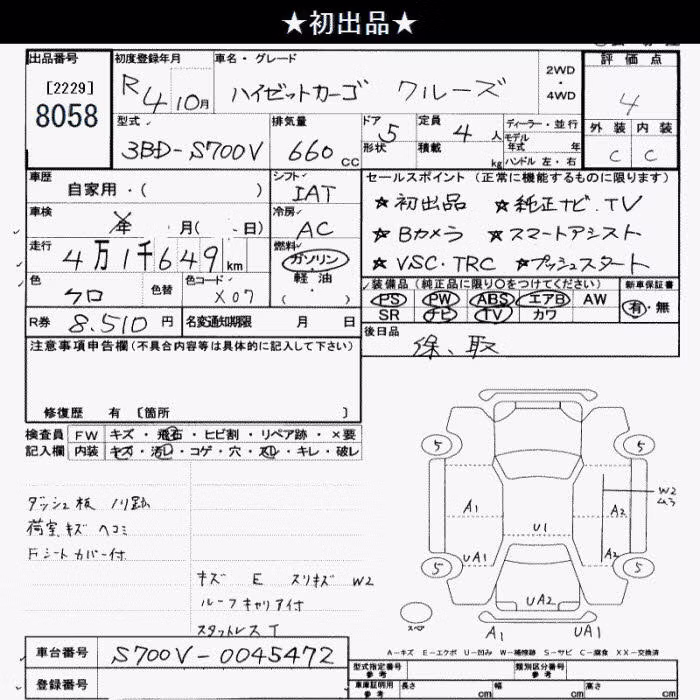 ★初出品★
出品番号
[2229]
8058
初度登録年月
R 4 10月
車名・グレード
ハイゼットカーゴ クルーズ
2WD
・
4WD
評価点
4
外装 内装
C C
型式
3BD-S700V
排気量
660 CC
ドア 5
形状
定員 4 人
積載 kg
ディーラー・並行
モデル
年式 年
ハンドル 左・右
車歴
自家用・( )
シフト
IAT
セールスポイント (正常に機能するものに限ります)
★初出品 ★純正ナビ.TV
★Bカメラ ★スマートアシスト
★VSC・TRC ★プッシュスタート
車検
年 月( ・ 日)
冷房
AC
走行
4万1千649km
燃料
ガソリン
・
軽油
( ・ )
色
クロ
色替
色コード
X07
装備品 (純正品に限り○をつけてください)
PS PW ABS エアB AW
SR ナビ TV カワ
新車保証書
有・無
R券 8.510円
名変通知期限 月 日
後日品
保、取
注意事項申告欄(不具合内容等は具体的に記入して下さい)
修復歴 有 〔箇所 〕
検査員
記入欄
FW キズ・飛石・ヒビ割・リペア跡・×要
内装 キズ・汚レ・コゲ・穴・スレ・キレ・破レ
ダッシュ板 ノリ跡
荷室キズ ヘコミ
Fシートカバー付
キズ E スリキズ W2
ルーフキャリア付
スタットレスT
5 5
W2
ムラ
A1 A2
U1
UA1 A2
5 5
UA2
スペア
A1 UA1
A−キズ E−エクボ U−凹み W−補修跡 S−サビ C−腐食 XX−交換済
車台番号 S700V-0045472
登録番号
型式指定番号
参考
類別区分番号
参考
車庫証明用
参考
長さ cm 幅 cm 高さ cm